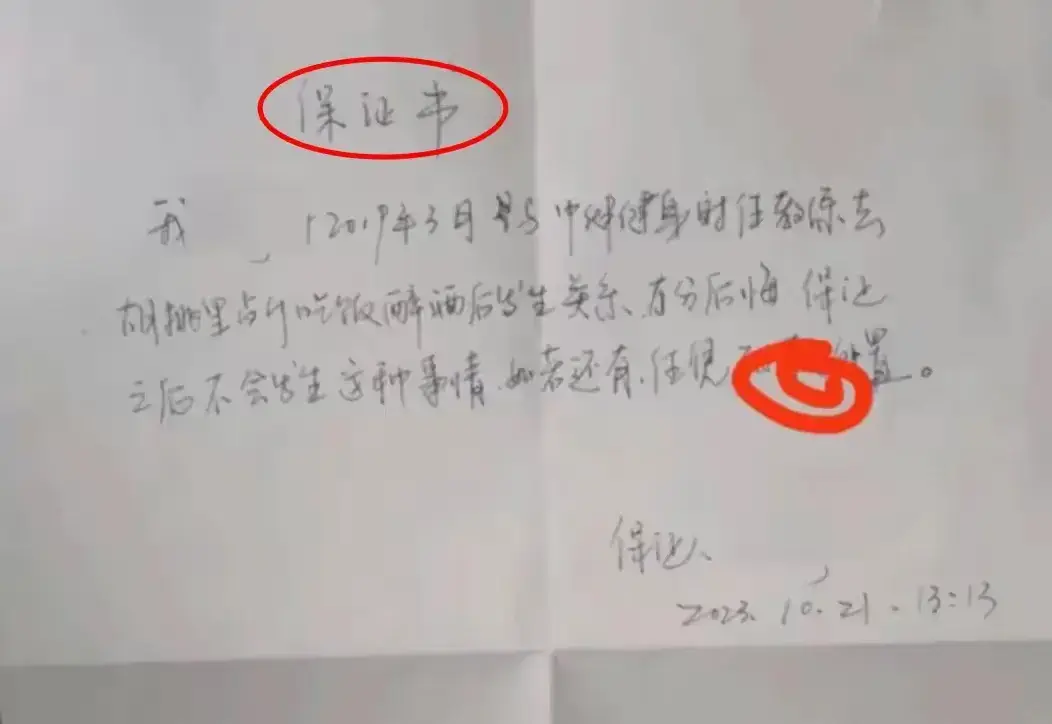 保证书
我 2019年3月 与中健健身时任教练去
胡桃里占行吃饭醉酒后发生关系、十分后悔 保证
之后不会发生这种事情、如若还有、任凭 处置。
保证人
2023. 10. 21. 13:13